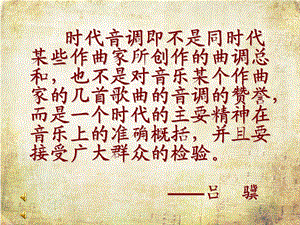 时代音调即不是同时代
某些作曲家所创作的曲调总
和，也不是对音乐某个作曲
家的几首歌曲的音调的赞誉，
而是一个时代的主要精神在
音乐上的准确概括，并且要
接受广大群众的检验。
——吕 骥